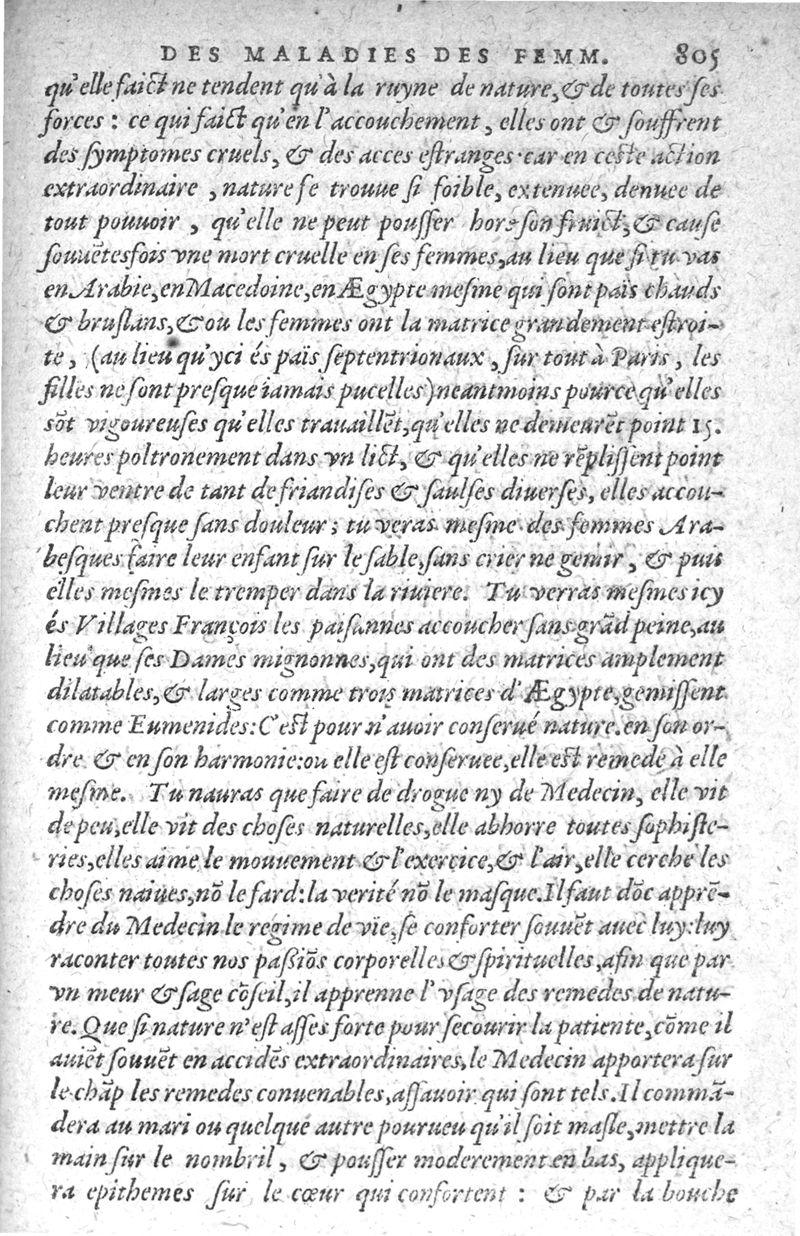 DES MALADIES DES FEMM. 805
qu'elle faict ne tendent qu'à la ruyne de nature, & de toutes ses
forces : ce qui faict qu'en l'accouchement, elles ont & souffrent
des symptomes cruels, & des acces estranges: car en ceste action
extraordinaire, nature se trouue si foible, extenuee, denuee de
tout pouuoir, qu'elle ne peut pousser hors son fruict, & cause
souuētesfois vne mort cruelle en ses femmes, au lieu que si tu vas
en Arabie, en Macedoine, en Ægypte mesme qui sont païs chauds
& bruslans, & ou les femmes ont la matrice grandement estroi-
te, (au lieu qu'yci és païs septentrionaux, sur tout à Paris, les
filles ne sont presque iamais pucelles) neantmoins pource qu'elles
sōt vigoureuses qu'elles trauaillēt, qu'elles ne demeurēt point 15.
heures poltronement dans vn lict, & qu'elles ne rēplissent point
leur ventre de tant de friandises & saulses diuerses, elles accou-
chent presque sans douleur; tu veras mesme des femmes Ara-
besques faire leur enfant sur le sable, sans crier ne gemir, & puis
elles mesmes le tremper dans la riuiere. Tu verras mesmes icy
és Villages François les paisannes accoucher sans grād peine, au
lieu que ses Dames mignonnes, qui ont des matrices amplement
dilatables, & larges comme trois matrices d'Ægypte, gemissent
comme Eumenides: C'est pour n'auoir conserué nature en son or-
dre & en son harmonie: ou elle est conseruee, elle est remede à elle
mesme. Tu nauras que faire de drogue ny de Medecin, elle vit
de peu, elle vit des choses naturelles, elle abhorre toutes sophiste-
ries, elles aime le mouuement & l'exercice, & l'air, elle cerche les
choses naiues, nō le fard: la verité nō le masque. Il faut dōc apprē-
dre du Medecin le regime de vie, se conforter souuēt auec luy: luy
raconter toutes nos passiōs corporelles & spirituelles, afin que par
vn meur & sage cōseil, il apprenne l'vsage des remedes de natu-
re. Que si nature n'est asses forte pour secourir la patiente, cōme il
auiēt souuēt en accidēs extraordinaires, le Medecin apportera sur
le chāp les remedes conuenables, assauoir qui sont tels. Il commā-
dera au mari ou quelque autre pourueu qu'il soit masle, mettre la
main sur le nombril, & pousser moderement en bas, applique-
ra epithemes sur le cœur qui confortent : & par la bouche